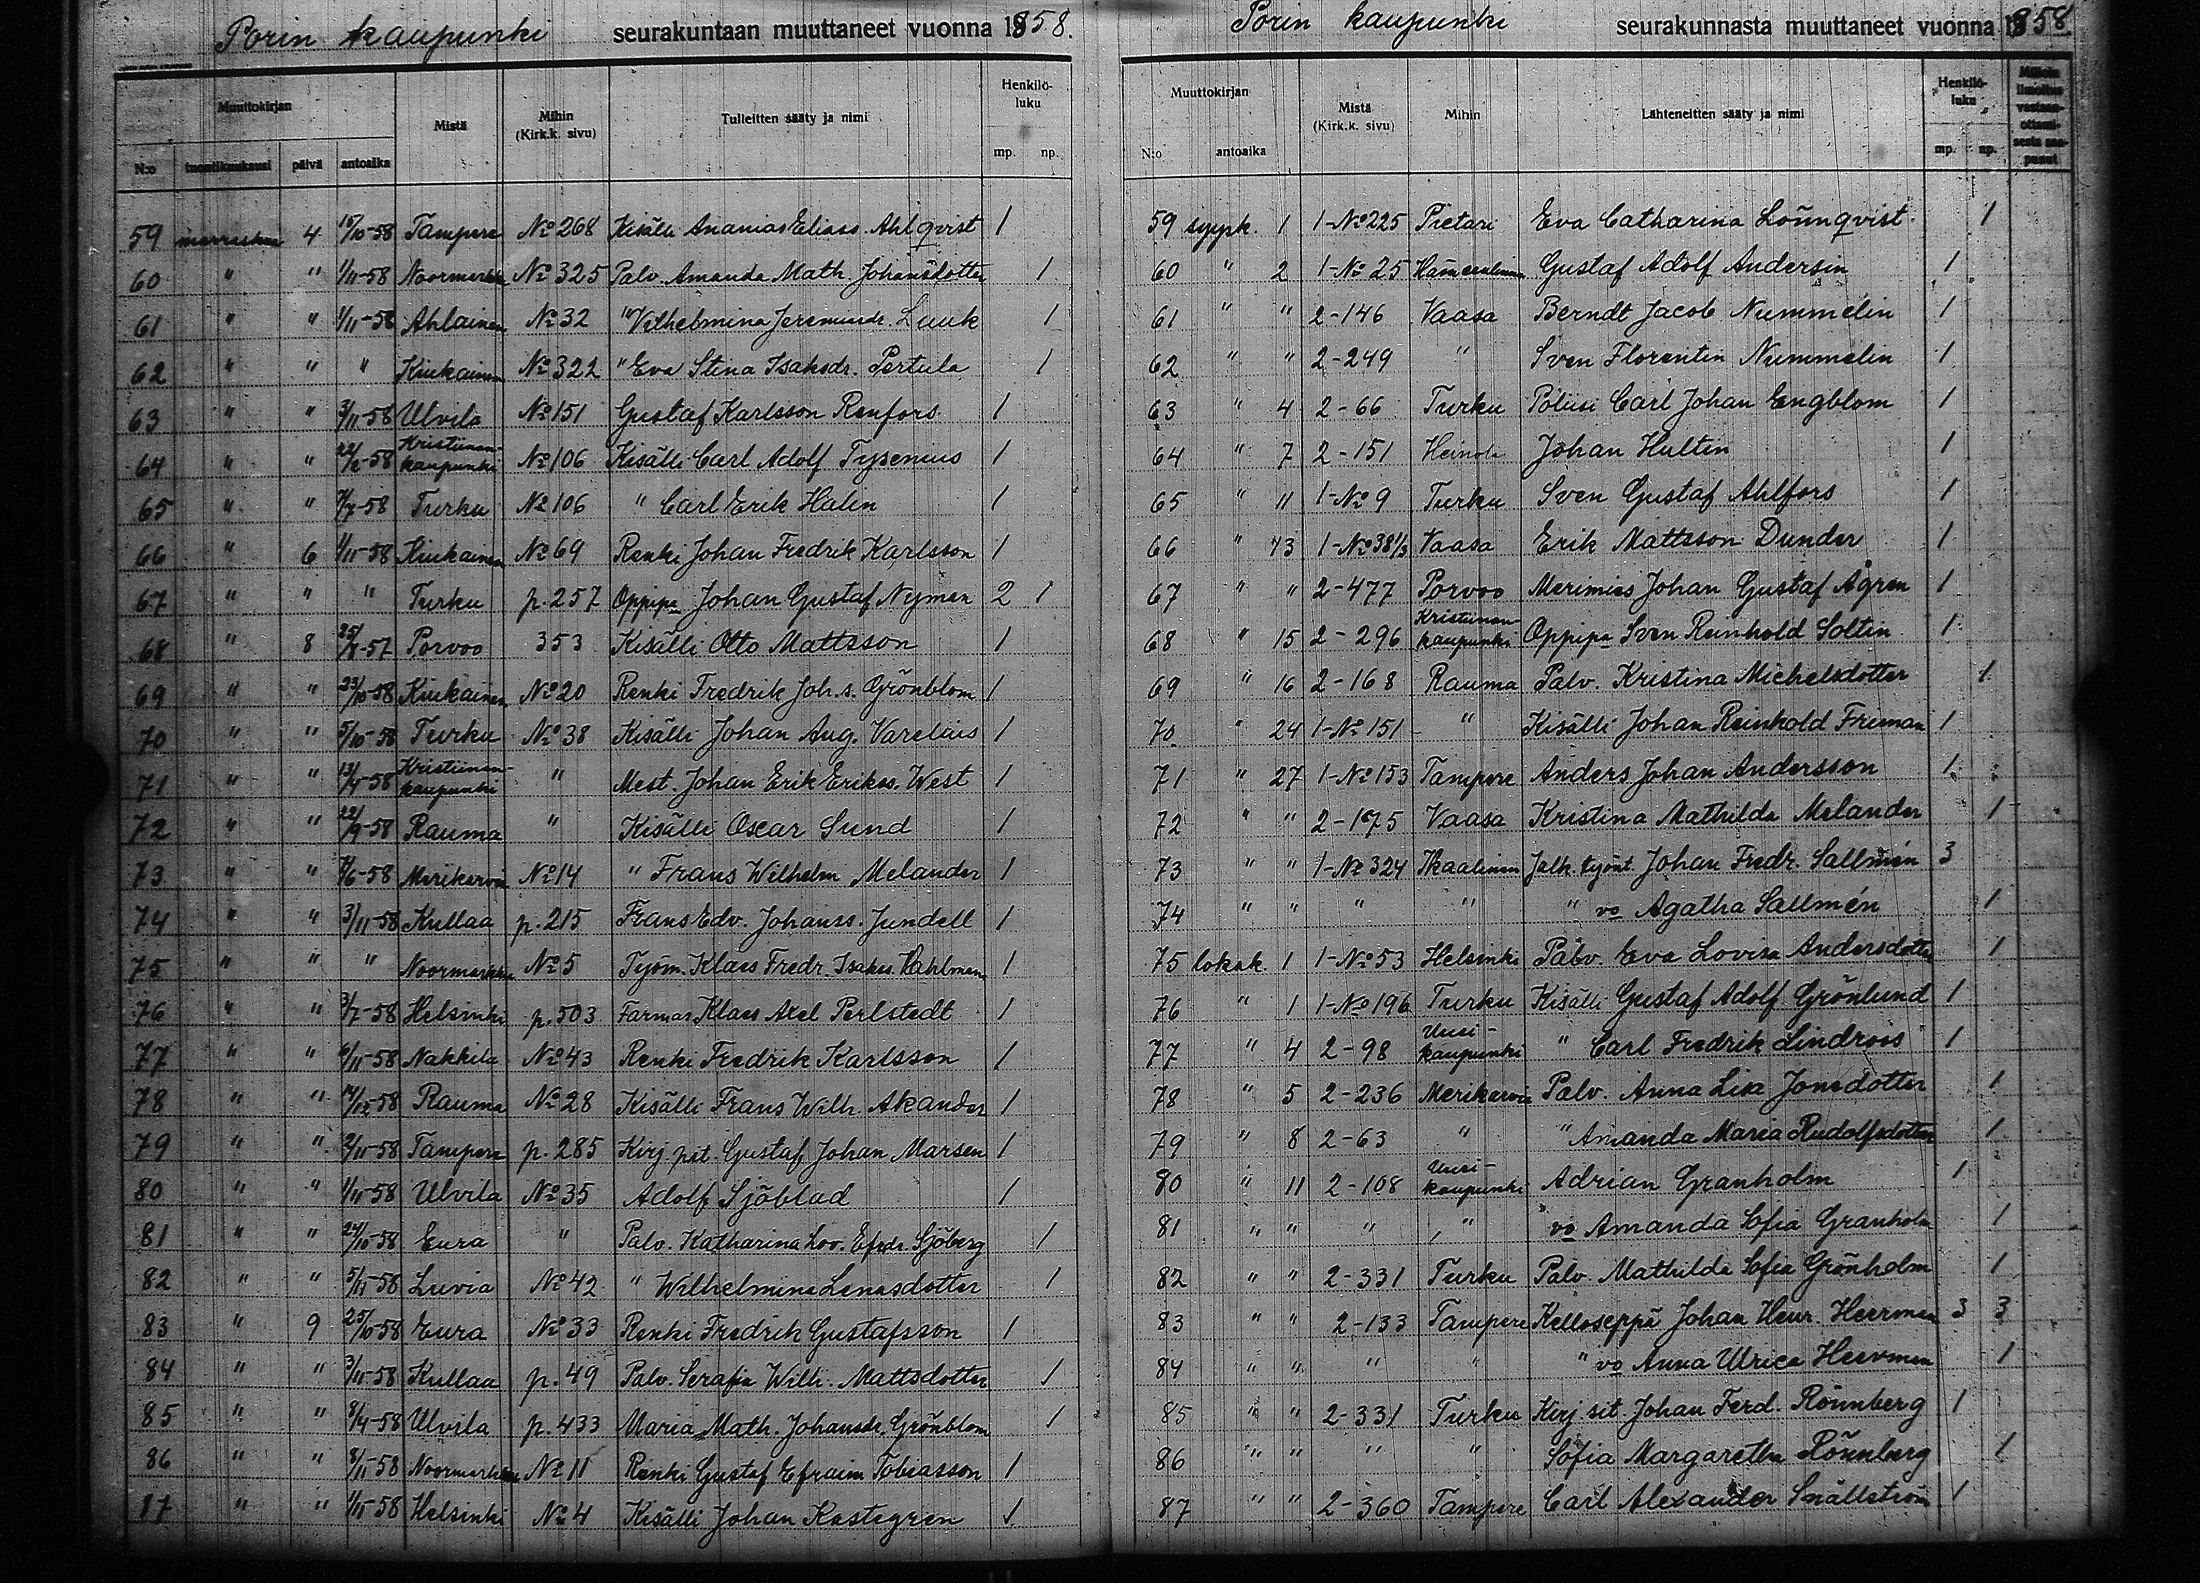 Porin kaupunki seurakuntaan muuttaneet vuonna 1858.
Muuttokirjan
Henkilö-
luku
N:o tuontikuukausi päivä antoaika Mistä Mihin (Kirk.k. sivu) Tulleitten sääty ja nimi mp. np.
59 marraskuu 4 15/10-58 Tampere No 268 Kisälli Ananias Eliass. Ahlqvist 1
60 " " 1/11-58 Noormarkku No 325 Palv. Amanda Math. Johansdotter 1
61 " " 1/11-58 Ahlainen No 32 " Vilhelmina Jeremiasdr. Luuk 1
62 " " " Kiukainen No 322 " Eva Stina Isaksdr. Pertula 1
63 " " 3/11-58 Ulvila No 151 Gustaf Karlsson Renfors 1
64 " " 22/2-58 Kristiinan-kaupunki No 106 Kisälli Carl Adolf Tysenius 1
65 " " /7-58 Turku No 106 " Carl Erik Halin 1
66 " 6 1/11-58 Kiukainen No 69 Renki Johan Fredrik Karlsson 1
67 " " " Turku p. 257 Oppipa Johan Gustaf Nyman 2 1
68 " 8 25/8-57 Porvoo 353 Kisälli Otto Mattsson 1
69 " " 23/10-58 Kiukainen No 20 Renki Fredrik Joh.s. Grönblom 1
70 " " 5/10-58 Turku No 38 Kisälli Johan Aug. Varelius 1
71 " " 13/4-58 Kristiinan-kaupunki " Mest. Johan Erik Erikss. West 1
72 " " 22/9-58 Rauma " Kisälli Oscar Sund 1
73 " " /6-58 Merikarvia No 14 " Frans Wilhelm Melander 1
74 " " 3/11-58 Kullaa p. 215 Frans Edv. Johanss. Jundell 1
75 " " " Noormarkku No 5 Työm. Klaes Fredr. Isakss. Dahlman 1
76 " " 3/7-58 Helsinki p. 503 Farmas. Klaes Axel Perlstedt 1
77 " " 6/11-58 Nakkila No 43 Renki Fredrik Karlsson 1
78 " " 14/10-58 Rauma No 28 Kisälli Frans Wilh. Akander 1
79 " " 2/11-58 Tampere p. 285 Kirj. pit. Gustaf Johan Marsen 1
80 " " 1/11-58 Ulvila No 35 Adolf Sjöblad 1
81 " " 24/10-58 Eura " Palv. Katharina Lov. Efrdr. Sjöberg 1
82 " " 5/11-58 Luvia No 42 " Wilhelmina Lenasdotter 1
83 " 9 25/10-58 Eura No 33 Renki Fredrik Gustafsson 1
84 " " 3/11-58 Kullaa p. 49 Palv. Serafia Wilh. Mattsdotter 1
85 " " 8/4-58 Ulvila p. 433 Maria Math. Johansdr. Grönblom 1
86 " " 8/11-58 Noormarkku No 11 Renki Gustaf Efraim Tobiasson 1
87 " " 1/11-58 Helsinki No 4 Kisälli Johan Kastegren 1
Porin kaupunki seurakunnasta muuttaneet vuonna 1858.
Muuttokirjan
Henkilö-
luku
N:o antoaika Mistä (Kirk.k. sivu) Mihin Lähteneitten sääty ja nimi mp. np.
59 syysk. 1 1-No 225 Pietari Eva Catharina Lönnqvist 1
60 " 2 1-No 25 Hämeenlinna Gustaf Adolf Andersin 1
61 " " 2-146 Vaasa Berndt Jacob Nummelin 1
62 " " 2-249 " Sven Florentin Nummelin 1
63 " 4 2-66 Turku Poliisi Carl Johan Engblom 1
64 " 7 2-151 Heinola Johan Hultin 1
65 " 11 1-No 9 Turku Sven Gustaf Ahlfors 1
66 " 13 1-No 38 1/2 Vaasa Erik Mattsson Dunder 1
67 " " 2-477 Porvoo Merimies Johan Gustaf Ågren 1
68 " 15 2-296 Kristiinan-kaupunki Oppipa Sven Reinhold Soltin 1
69 " 16 2-168 Rauma Palv. Kristina Michelsdotter 1
70 " 24 1-No 151 " Kisälli Johan Reinhold Freman 1
71 " 27 1-No 153 Tampere Anders Johan Andersson 1
72 " " 2-175 Vaasa Kristina Mathilda Melander 1
73 " " 1-No 324 Ikaalinen Jalk. työnt. Johan Fredr. Sallmén 3
74 " " " " " vo Agatha Sallmén 1
75 lokak. 1 1-No 53 Helsinki Palv. Eva Lovisa Andersdotter 1
76 " 1 1-No 196 Turku Kisälli Gustaf Adolf Grönlund 1
77 " 4 2-98 Uusi-kaupunki " Carl Fredrik Lindroos 1
78 " 5 2-236 Merikarvia Palv. Anna Lisa Jonsdotter 1
79 " 8 2-63 " " Amanda Maria Rudolfsdotter 1
80 " 11 2-108 Uusi-kaupunki Adrian Granholm 1
81 " " " " vo Amanda Sofia Granholm 1
82 " " 2-331 Turku Palv. Mathilda Sofia Grönholm 1
83 " " 2-133 Tampere Kelloseppä Johan Henr. Heerman 3 3
84 " " " " " vo Anna Ulrica Heerman 1
85 " " 2-331 Turku Kirj sit. Johan Ferd. Rönnberg 1
86 " " " " Sofia Margaretha Rönnberg 1
87 " " 2-360 Tampere Carl Alexander Snällström 1